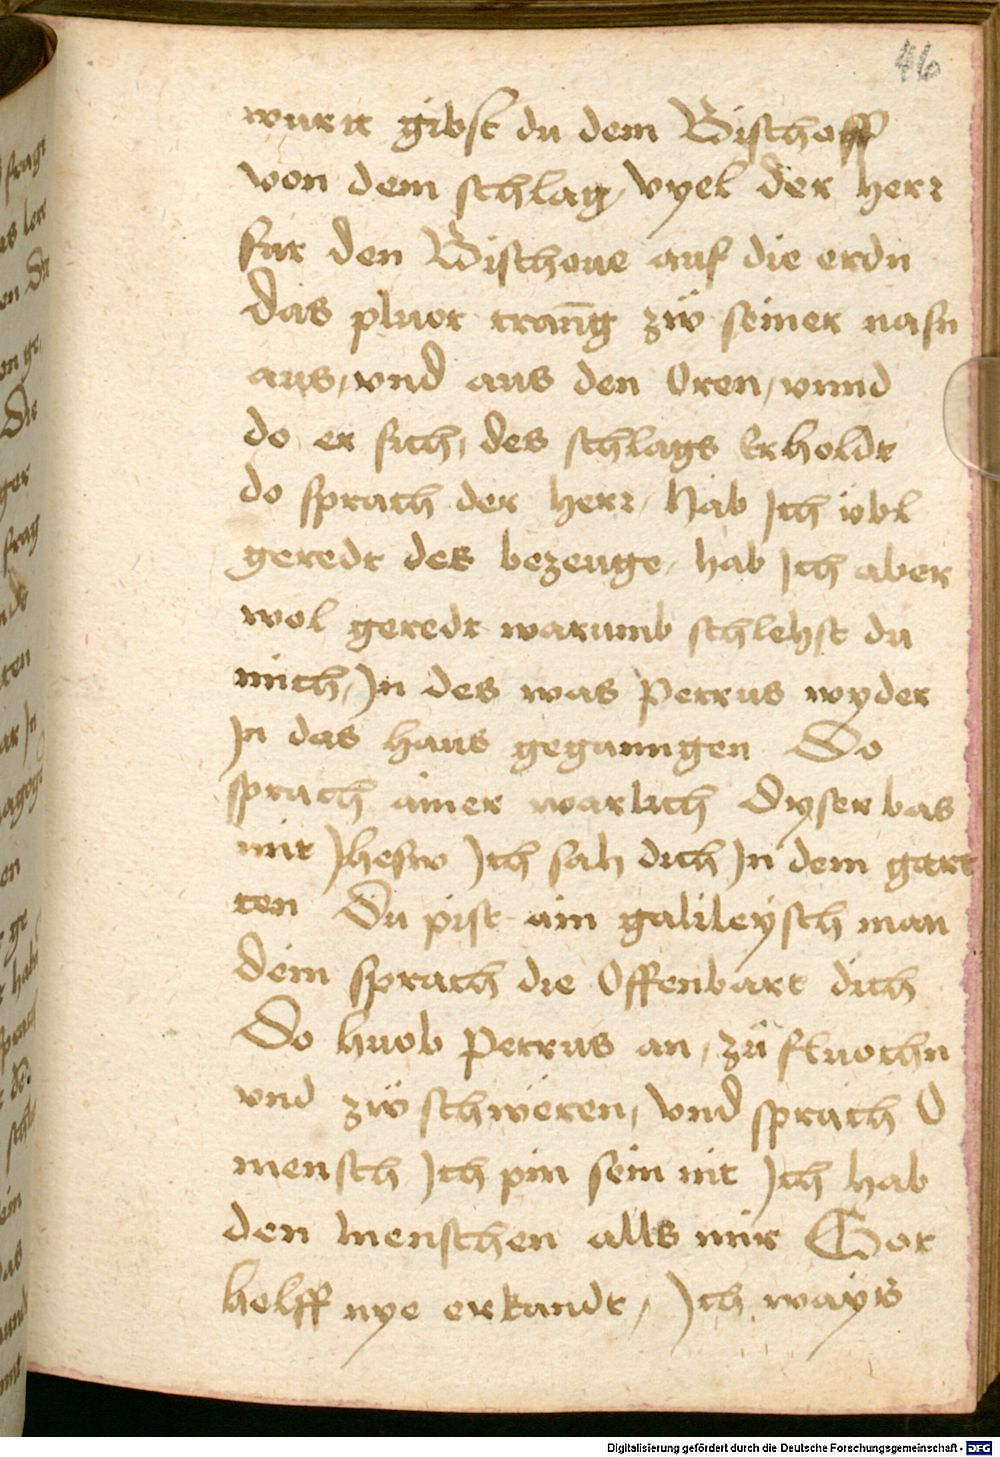 46
wurtt gibst du dem Bischoff
von dem schlag, vyel der herr
fur den Bischoue auf die erdn
das pluot trang zw̋ seiner nasn
aus, vnd aus den Oren, vnnd
do er sich, des schlags erholdt
do sprach der herr, Hab Jch vbl
geredt des bezeuge, hab Jch aber
wol geredt warumb schlehst du
mich, Jn des was Petrus wyder
Jn das haus geganngen Do
sprach ainer warlich Dyser bas
mit Jhesw Jch sah dich Jn dem gart
ten Du pist ain galileysch man
dein sprach die Offenbart dich
Do huob Petrus an, zű fluochn
vnd zw̋ schweren, vnd sprach O
mensch Jch pin sein nit Jch hab
den menschen alls mir Got
helff nye erkandt, Jch ways
Digitalisierung gefördert durch die Deutsche Forschungsgemeinschaft - DFG